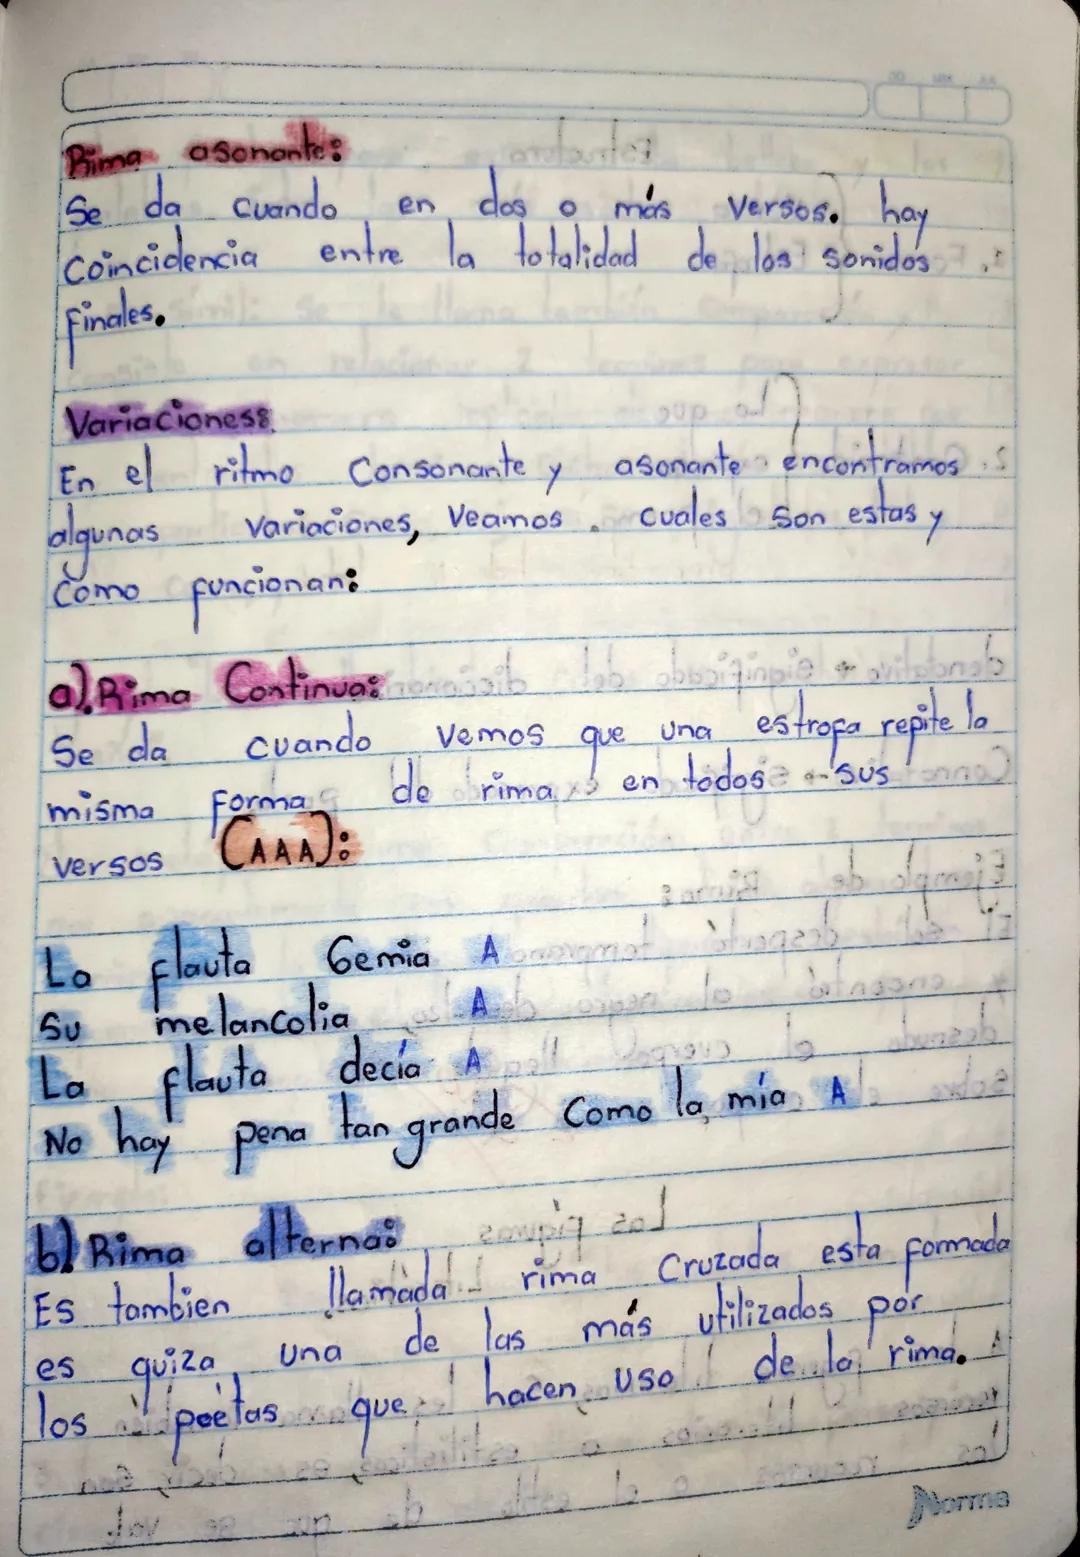 Rima asonante:
Se da cuando en dos o más versos. hay
coincidencia entre la totalidad de los sonidos
finales.
Variaciones:
En el ritmo Consonante y asonante encontramos
algunas variaciones, Veamos cuales son estas y
como funcionan:
a). Rima Continua:
Se da cuando vemos que una estrofa repite la
misma forma de rima en todos sus
versos (AAA):
La flauta Gemia A
Su melancolia A
La flauta decía A
No hay pena tan grande como la mía A
b) Rima alterna:
Es tambien llamada rima Cruzada esta formada
es quiza una de las más utilizados por
los poetas que hacen uso de la rima.
Norma